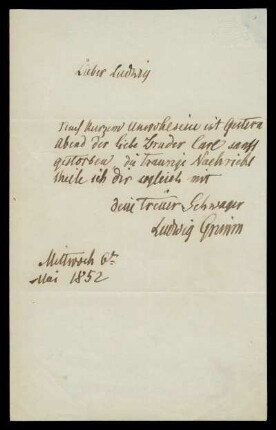 Lieber Ludwig
Nach kurzem Unwohlsein ist gestern
Abend der liebe Bruder Carl sanft
gestorben, die traurige Nachricht
theile ich dir sogleich mit
dein treuer Schwager
Ludwig Grimm
Mittwoch 6t
Mai 1852